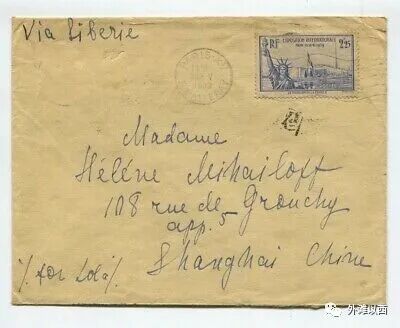 Via Siberie
EXPOSITION INTERNATIONALE
NEW YORK 1939
RF
2F25
Madame
Hélène Mihailoff
108 rue de Grouchy
app. 5
Shanghai Chine
外滩以西